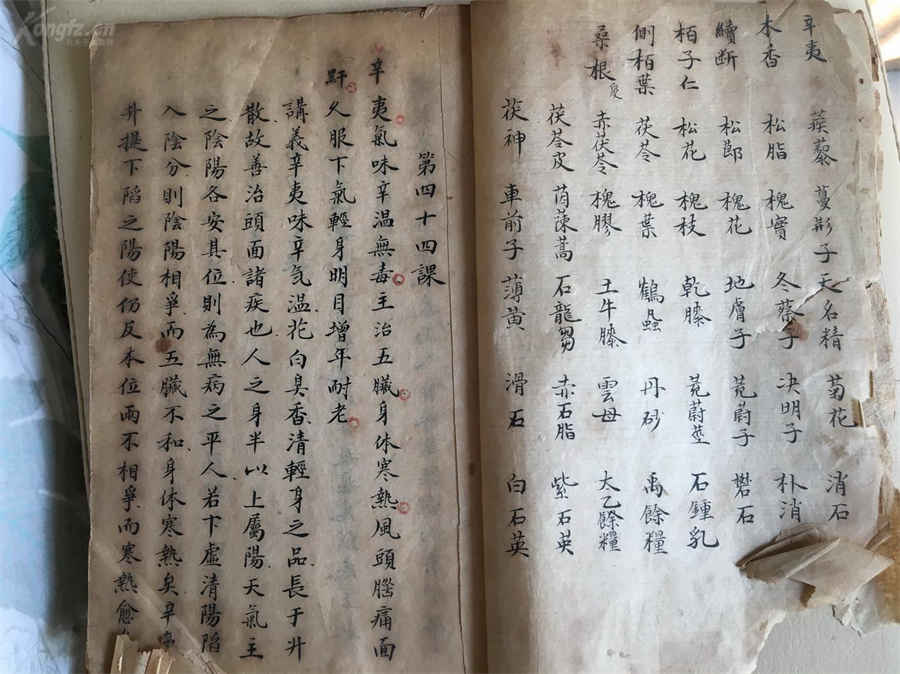 辛夷 蒺藜 蔓形子 天名精 菊花 消石
木香 松脂 槐實 冬葵子 决明子 朴消
續断 松郎 槐花 地膚子 茺蔚子 礬石
栢子仁 松花 槐枝 乾膝 茺蔚莖 石鍾乳
側栢葉 茯苓 槐葉 鶴虱 丹砂 禹餘糧
桑根皮 赤茯苓 槐膠 土牛膝 雲母 太乙餘糧
茯苓皮 茵蔯蒿 石龍芻 赤石脂 紫石英
茯神 車前子 蒲黄 滑石 白石英
第四十四課
辛夷氣味辛温無毒主治五臟身体寒熱風頭腦痛面
䵟久服下氣輕身明目增年耐老
講義辛夷味辛气温花白臭香清輕身之品長于升
散故善治頭面諸疾也人之身半以上屬陽天氣主
之陰陽各安其位則為無病之平人若下虛清陽陷
入陰分則陰陽相爭而五臟不和身体寒熱矣辛
升提下陷之陽使仍反本位而不相爭而寒熱愈
Kongfz.cn